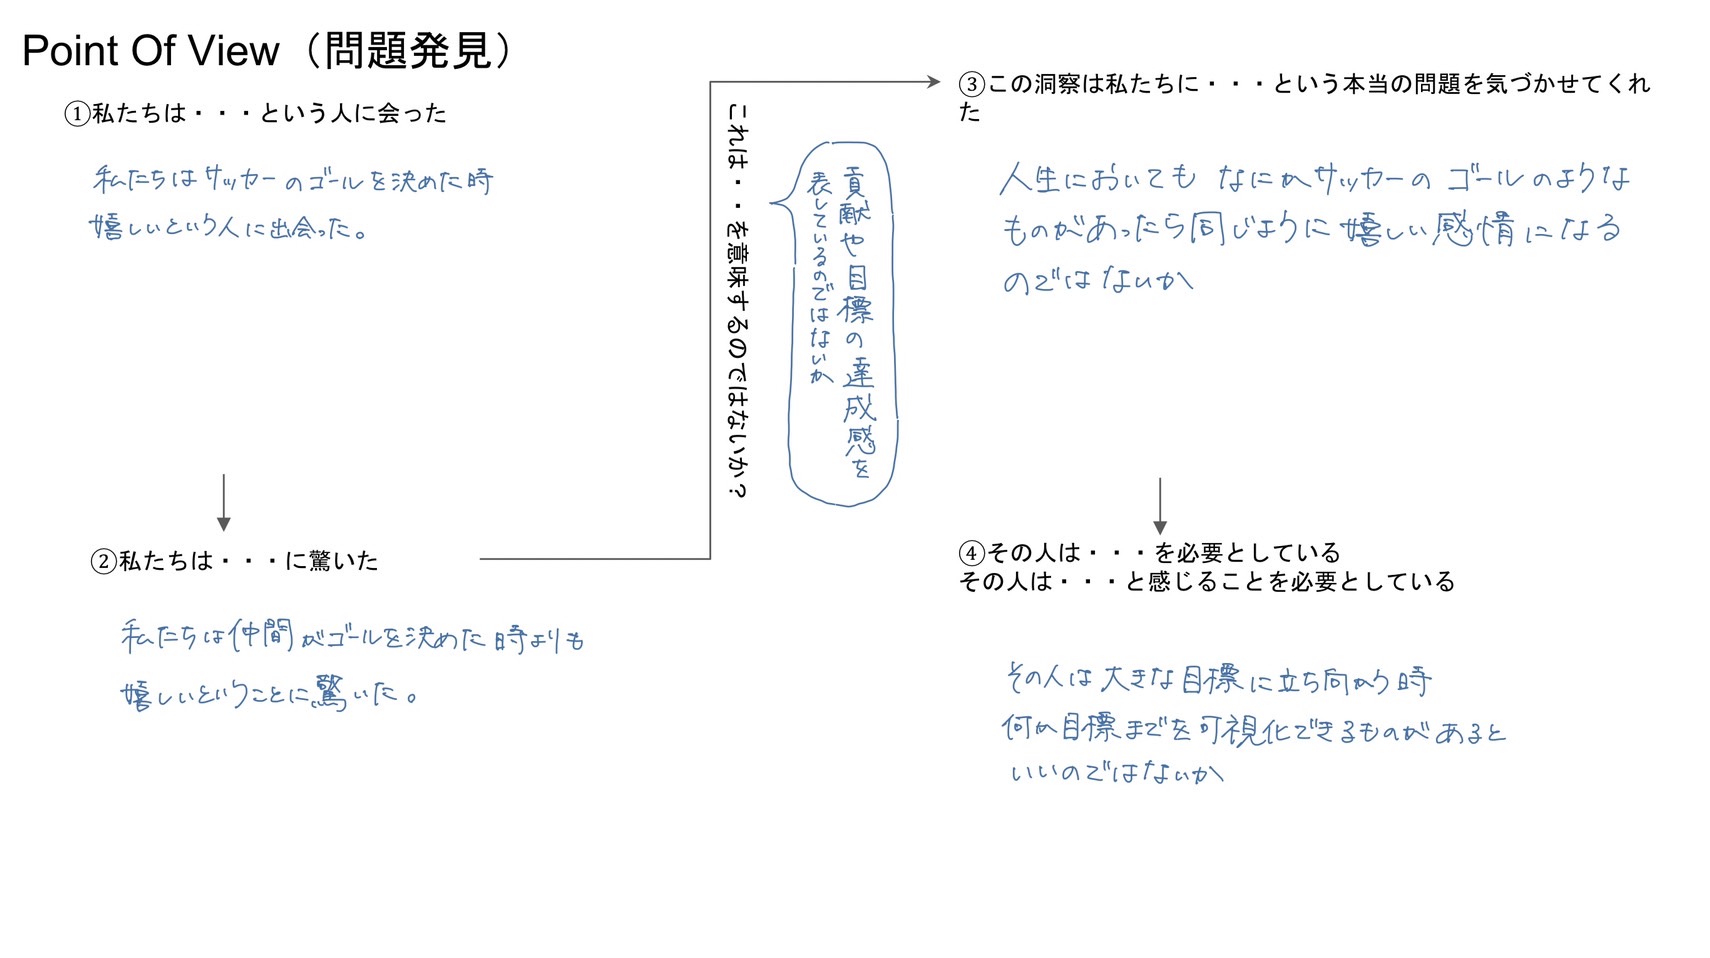 Point Of View（問題発見）
①私たちは・・・という人に会った
私たちはサッカーのゴールを決めた時
嬉しいという人に出会った。
②私たちは・・・に驚いた
私たちは仲間がゴールを決めた時よりも
嬉しいということに驚いた。
これは・・を意味するのではないか？
貢献や目標の達成感を
表しているのではないか
③この洞察は私たちに・・・という本当の問題を気づかせてくれ
た
人生においてもなにかサッカーのゴールのような
ものがあったら同じように嬉しい感情になる
のではないか
④その人は・・・を必要としている
その人は・・・と感じることを必要としている
その人は大きな目標に立ち向かう時
何か目標までを可視化できるものがあると
いいのではないか